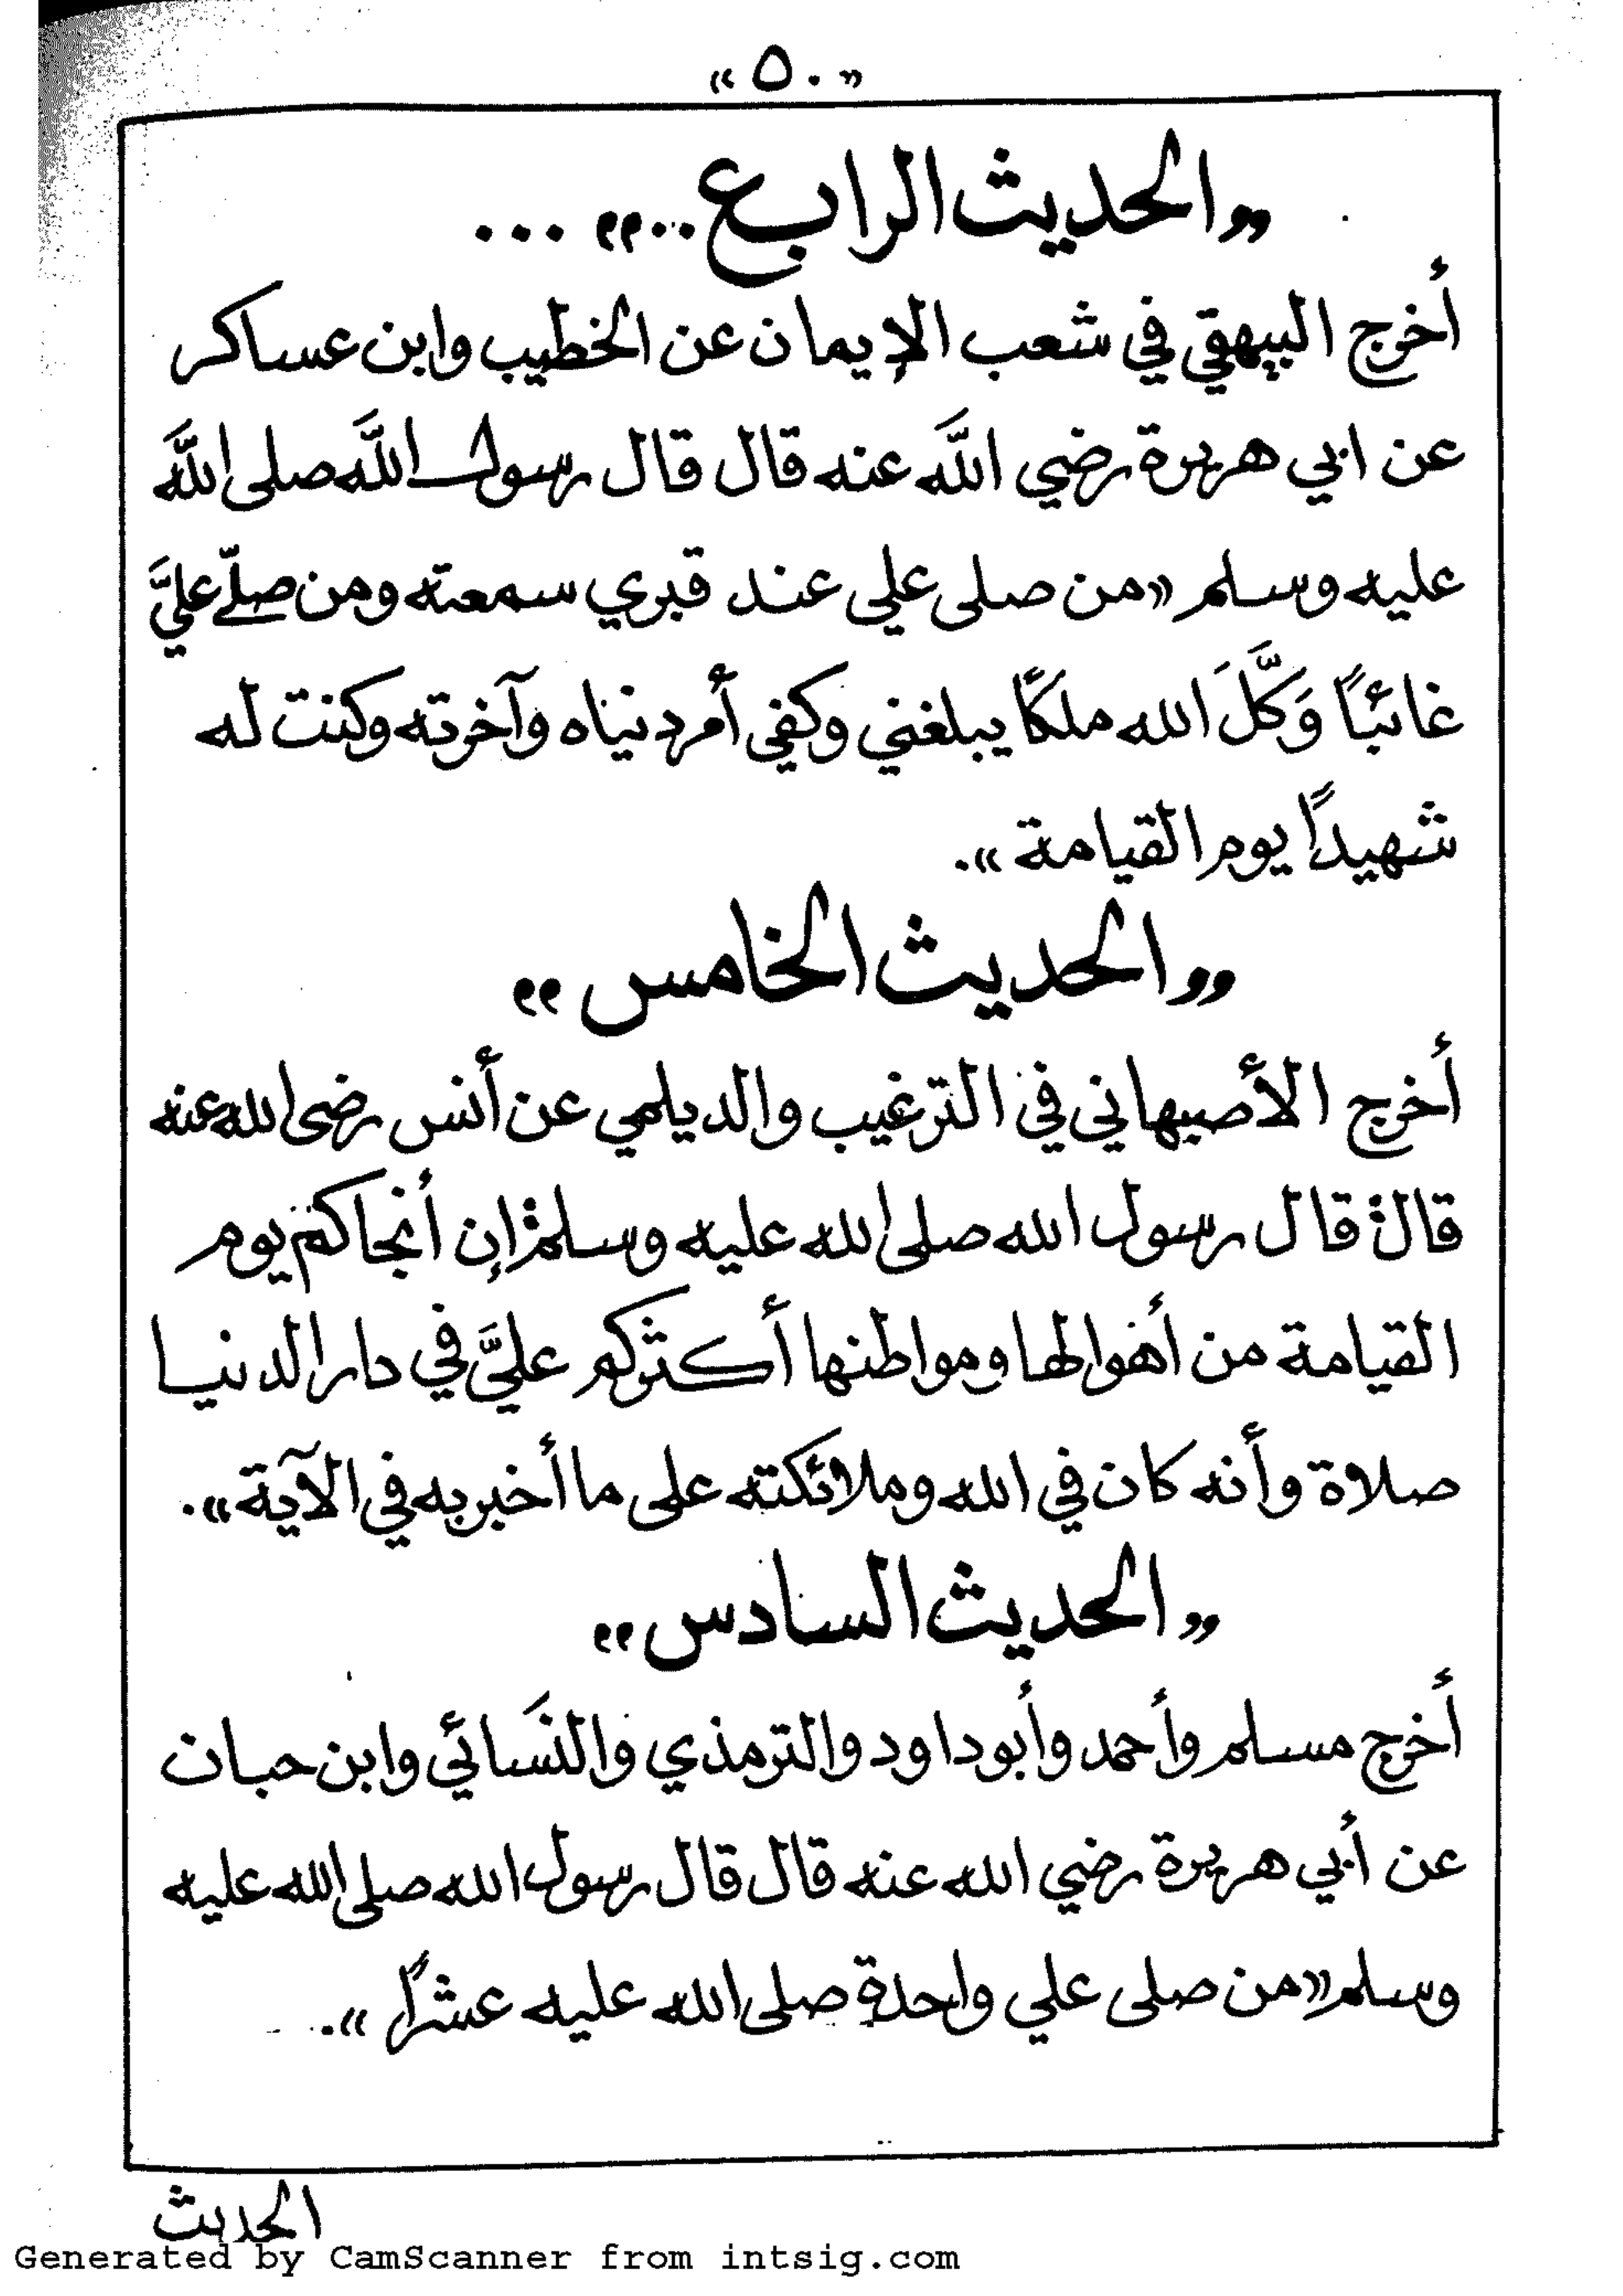 «٥٠»
„الحديث الرابع..„ ...
أخرج البيهقي في شعب الإيمان عن الخطيب وابن عساكر
عن ابي هريرة رضي اللَّه عنه قال قال رسول اللَّه صلى اللَّه
عليه وسلم «من صلى علي عند قبري سمعته ومن صلّے عليَّ
غائبًا وَكَّلَ الله ملكًا يبلغني وكفي أمر دنياه وآخرته وكنت له
شهيدًا يوم القيامة».
„الحديث الخامس„
أخرج الأصبهاني في الترغيب والديلمي عن أنس رضى الله عنه
قال: قال رسول الله صلى الله عليه وسلم: إن أنجاكم يوم
القيامة من أهوالها ومواطنها أكثركم عليَّ في دار الدنيا
صلاة وأنه كان في الله وملائكته على ما أخبر به في الآية».
„الحديث السادس„
أخرج مسلم وأحمد وأبو داود والترمذي والنَسائي وابن حبان
عن أبي هريرة رضي الله عنه قال قال رسول الله صلى الله عليه
وسلم «من صلى علي واحدة صلى الله عليه عشرًا».
الحديث
Generated by CamScanner from intsig.com